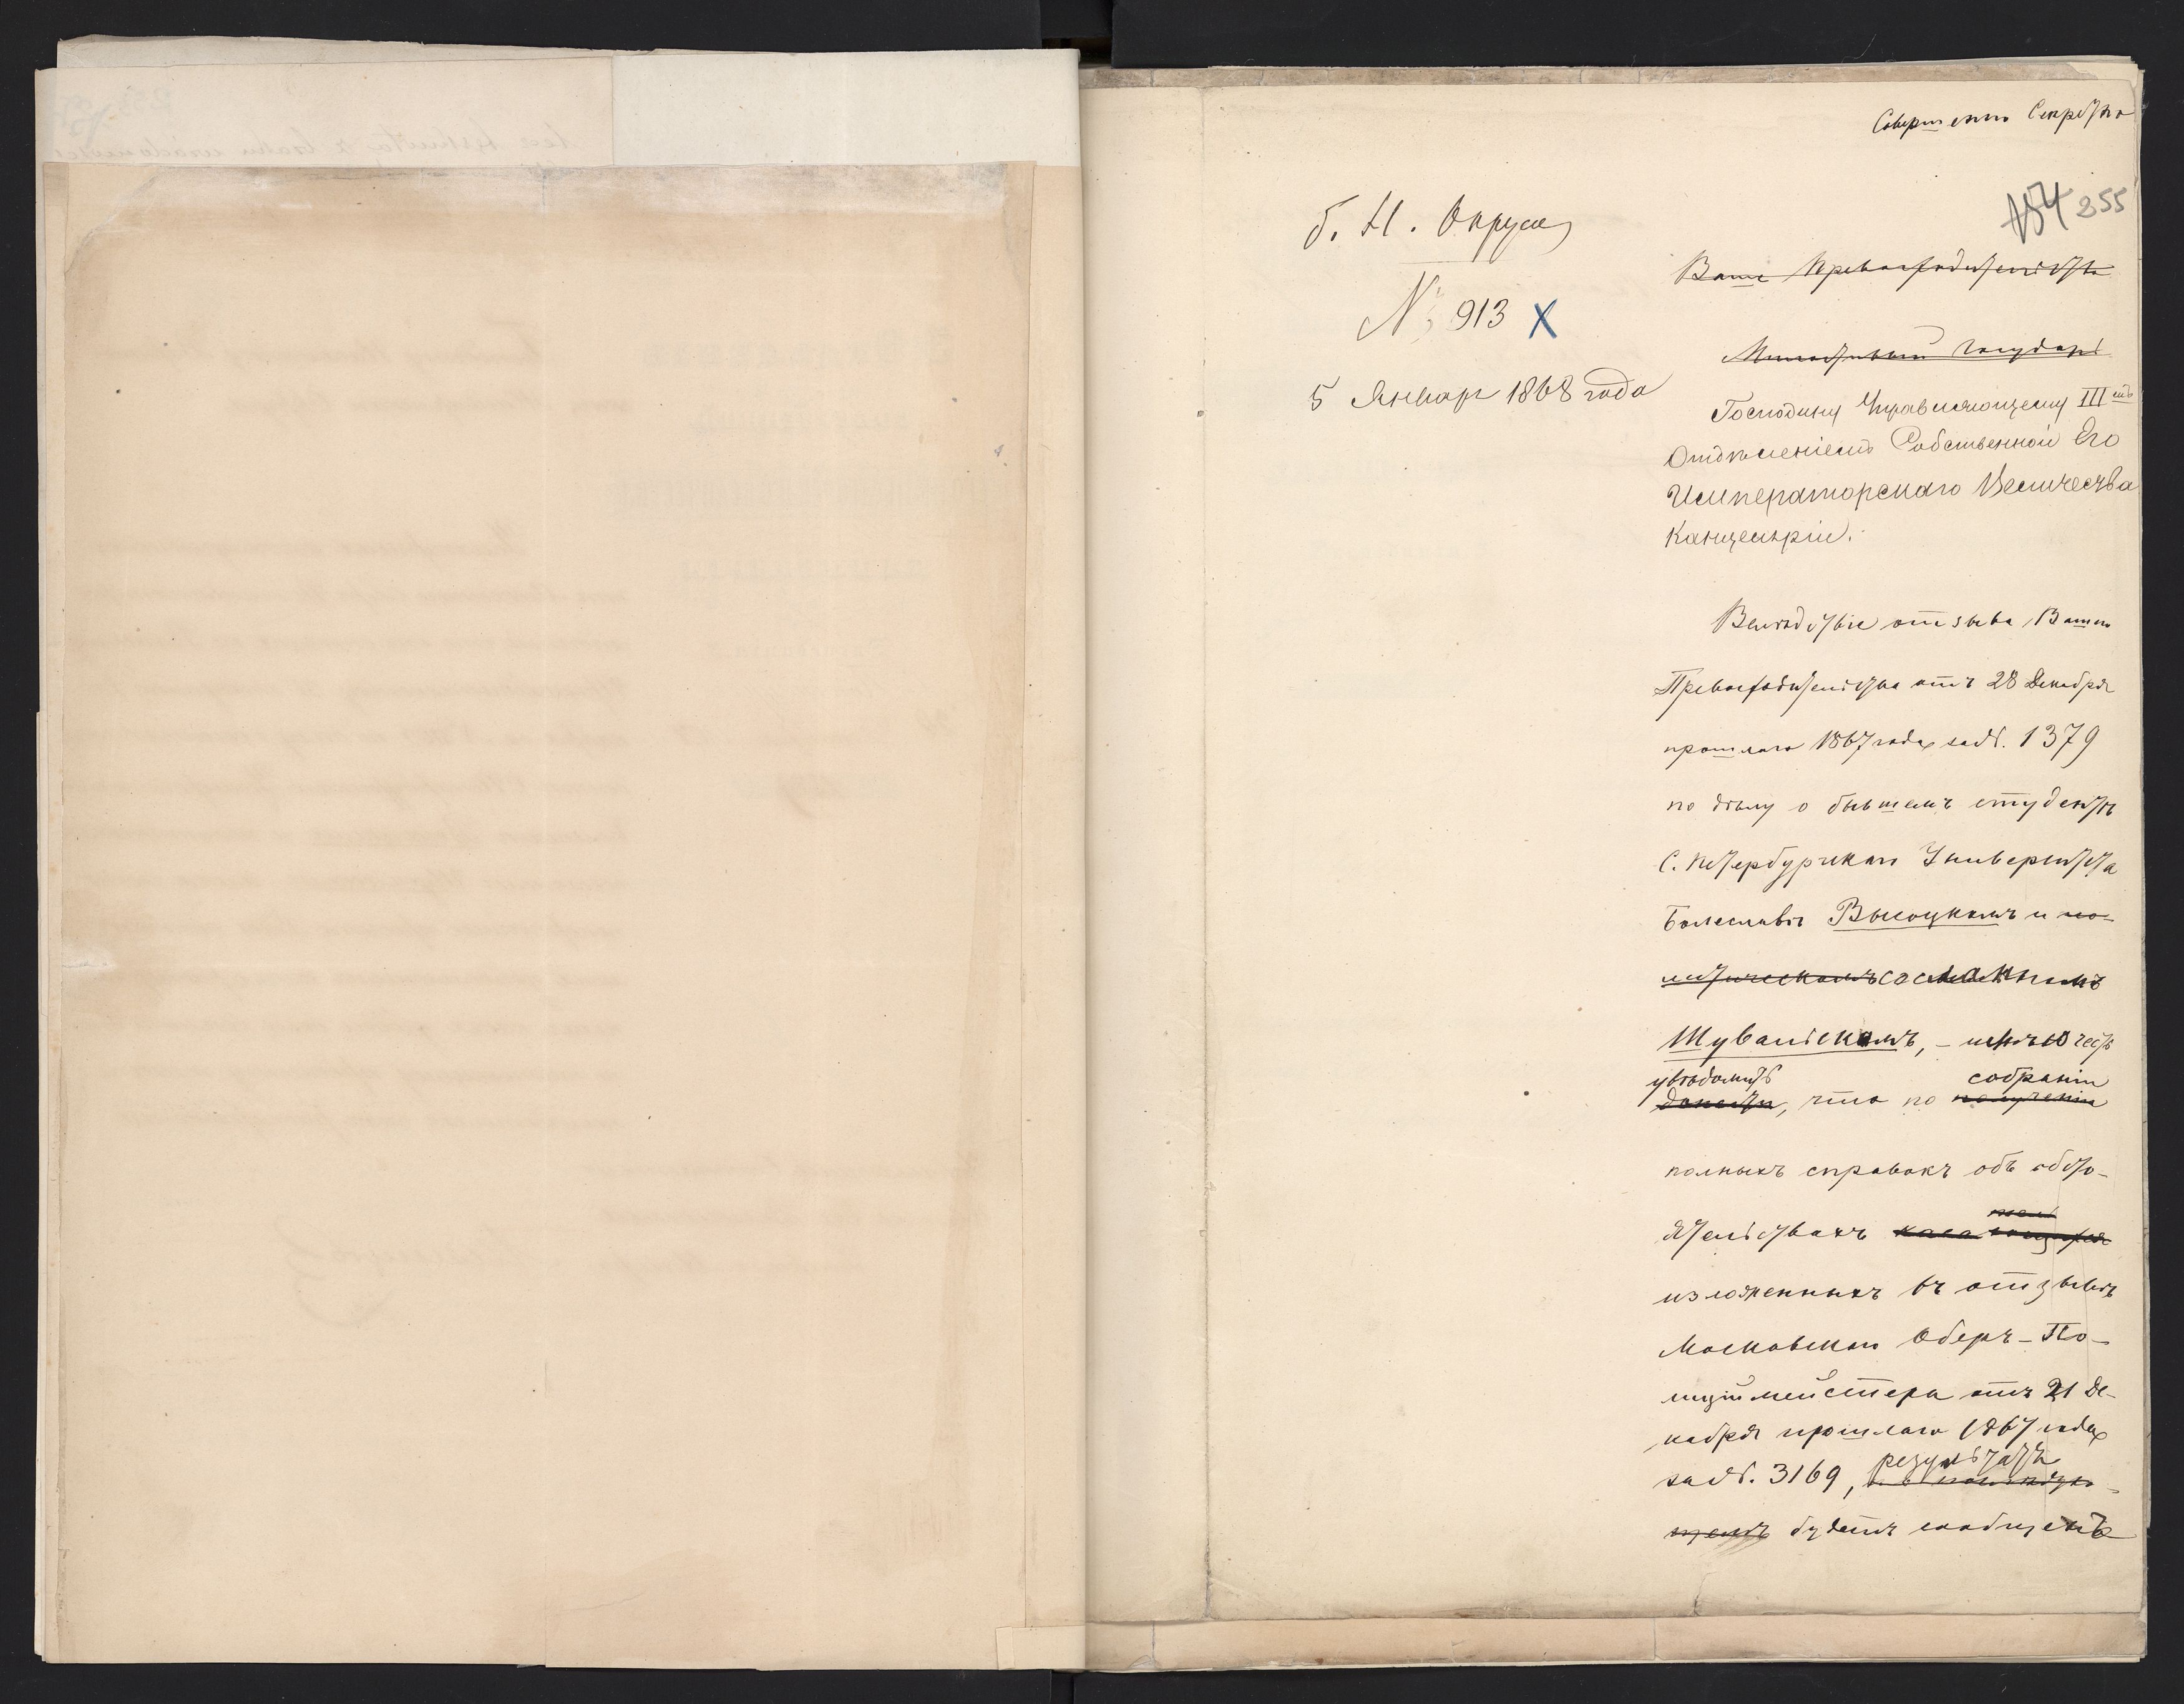 Совершенно Секретно
154 255
б. Н. Округа
№ 913 X
5 Января 1868 года
Ваше Превосходительство
Милостивый Государь
Господину Управляющему III-мъ
Отдѣленіемъ Собственной Его
Императорскаго Величества
Канцеляріи.
Вслѣдствіе отзыва Вашего
Превосходительства отъ 28 Декабря
прошлаго 1867 года за №. 1379
по дѣлу о бывшемъ студентѣ
С. Петербургскаго Университета
Болеславѣ Высоцкомъ и по-
литическомъ ссыльномъ
Шувальскомъ, – имѣю честь
увѣдомить собраніи
донести, что по полученіи
полныхъ справокъ объ обсто-
ятельствахъ касающихся
изложенныхъ въ отзывѣ
Московскаго Оберъ-По-
лицiймейстера отъ 21 Де-
кабря прошлаго 1867 года
результатъ
за №. 3169,
щемъ будетъ сообщенъ